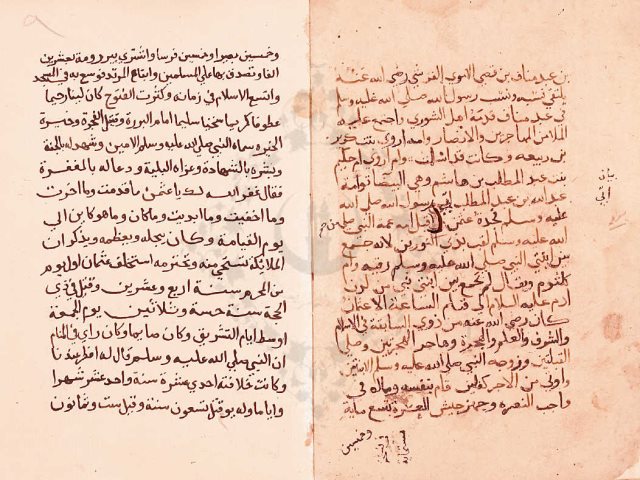 بن عبد مناف بن قصي الاموي القرشي رضي الله عنه
يلتقي نسبه ونسب رسول الله صلى الله عليه وسلم
في عبد مناف قدمه اهل الشورى واجمع عليه
الملا من المهاجرين والانصار وامه اروى بنت كريز
بن ربيعة وكانت قد اسلمت وام اروى ام حكيم
بنت عبد المطلب بن هاشم وهي البيضا توامة
عبد الله بن عبد المطلب ابي رسول الله صلى الله
عليه وسلم فجدة عثمن لامه عمة النبي صلى
الله عليه وسلم لقب بذي النورين لانه جمع
بين ابنتي النبي صلى الله عليه وسلم رقيه وام
كلثوم ويقال لم يجمع بين ابنتي نبي من لدن
ادم عليه السلام الى قيام الساعة الا عثمان
كان رضي الله عنه من ذوي السابقة في الاسلام
والشرف والعلم والهجرة وهاجر الهجرتين وصلى
القبلتين وزوجه النبي صلى الله عليه وسلم الابنتين
واوتي من الاجر كفلين قام بنفسه وماله في
واجب النصرة وجهز جيش العسرة بتسع ماية
وخمسين
وخمسين بعيرا وخمسين فرسا واشترى بير رومة بعشرين
الفا وتصدق بها على المسلمين وابتاع المربد فوسع به في المسجد
واتسع الاسلام في زمانه وكثرت الفتوح كان لينا رحيما
عطوفا كريما سخيا سليما امام البررة وقتيل الفجرة وحيرة
الخيره سماه النبي صلى الله عليه وسلم الامين وشهد له بالجنة
وبشره بالشهادة وعزاه البلية ودعا له بالمغفرة
فقال غفر الله لك يا عثمن ما قدمت وما اخرت
وما اخفيت وما ابديت وما كان وما هو كاين الى
يوم القيامة وكان يجله ويعظمه ويذكر ان
الملايكة تستحي منه وتحترمه استخلف عثمان اول يوم
من المحرم سنة اربع وعشرين وقتل في ذي
الحجة سنة خمسة وثلاثين يوم الجمعة
اوسط ايام التشريق وكان صايما وكان راى في المنام
ان النبي صلى الله عليه وسلم قال له افطر عندنا
وكانت خلافته احدى عشرة سنة واحد عشر شهرا
واياما وله يوم قتل تسعون سنة وقيل ست وثمانون